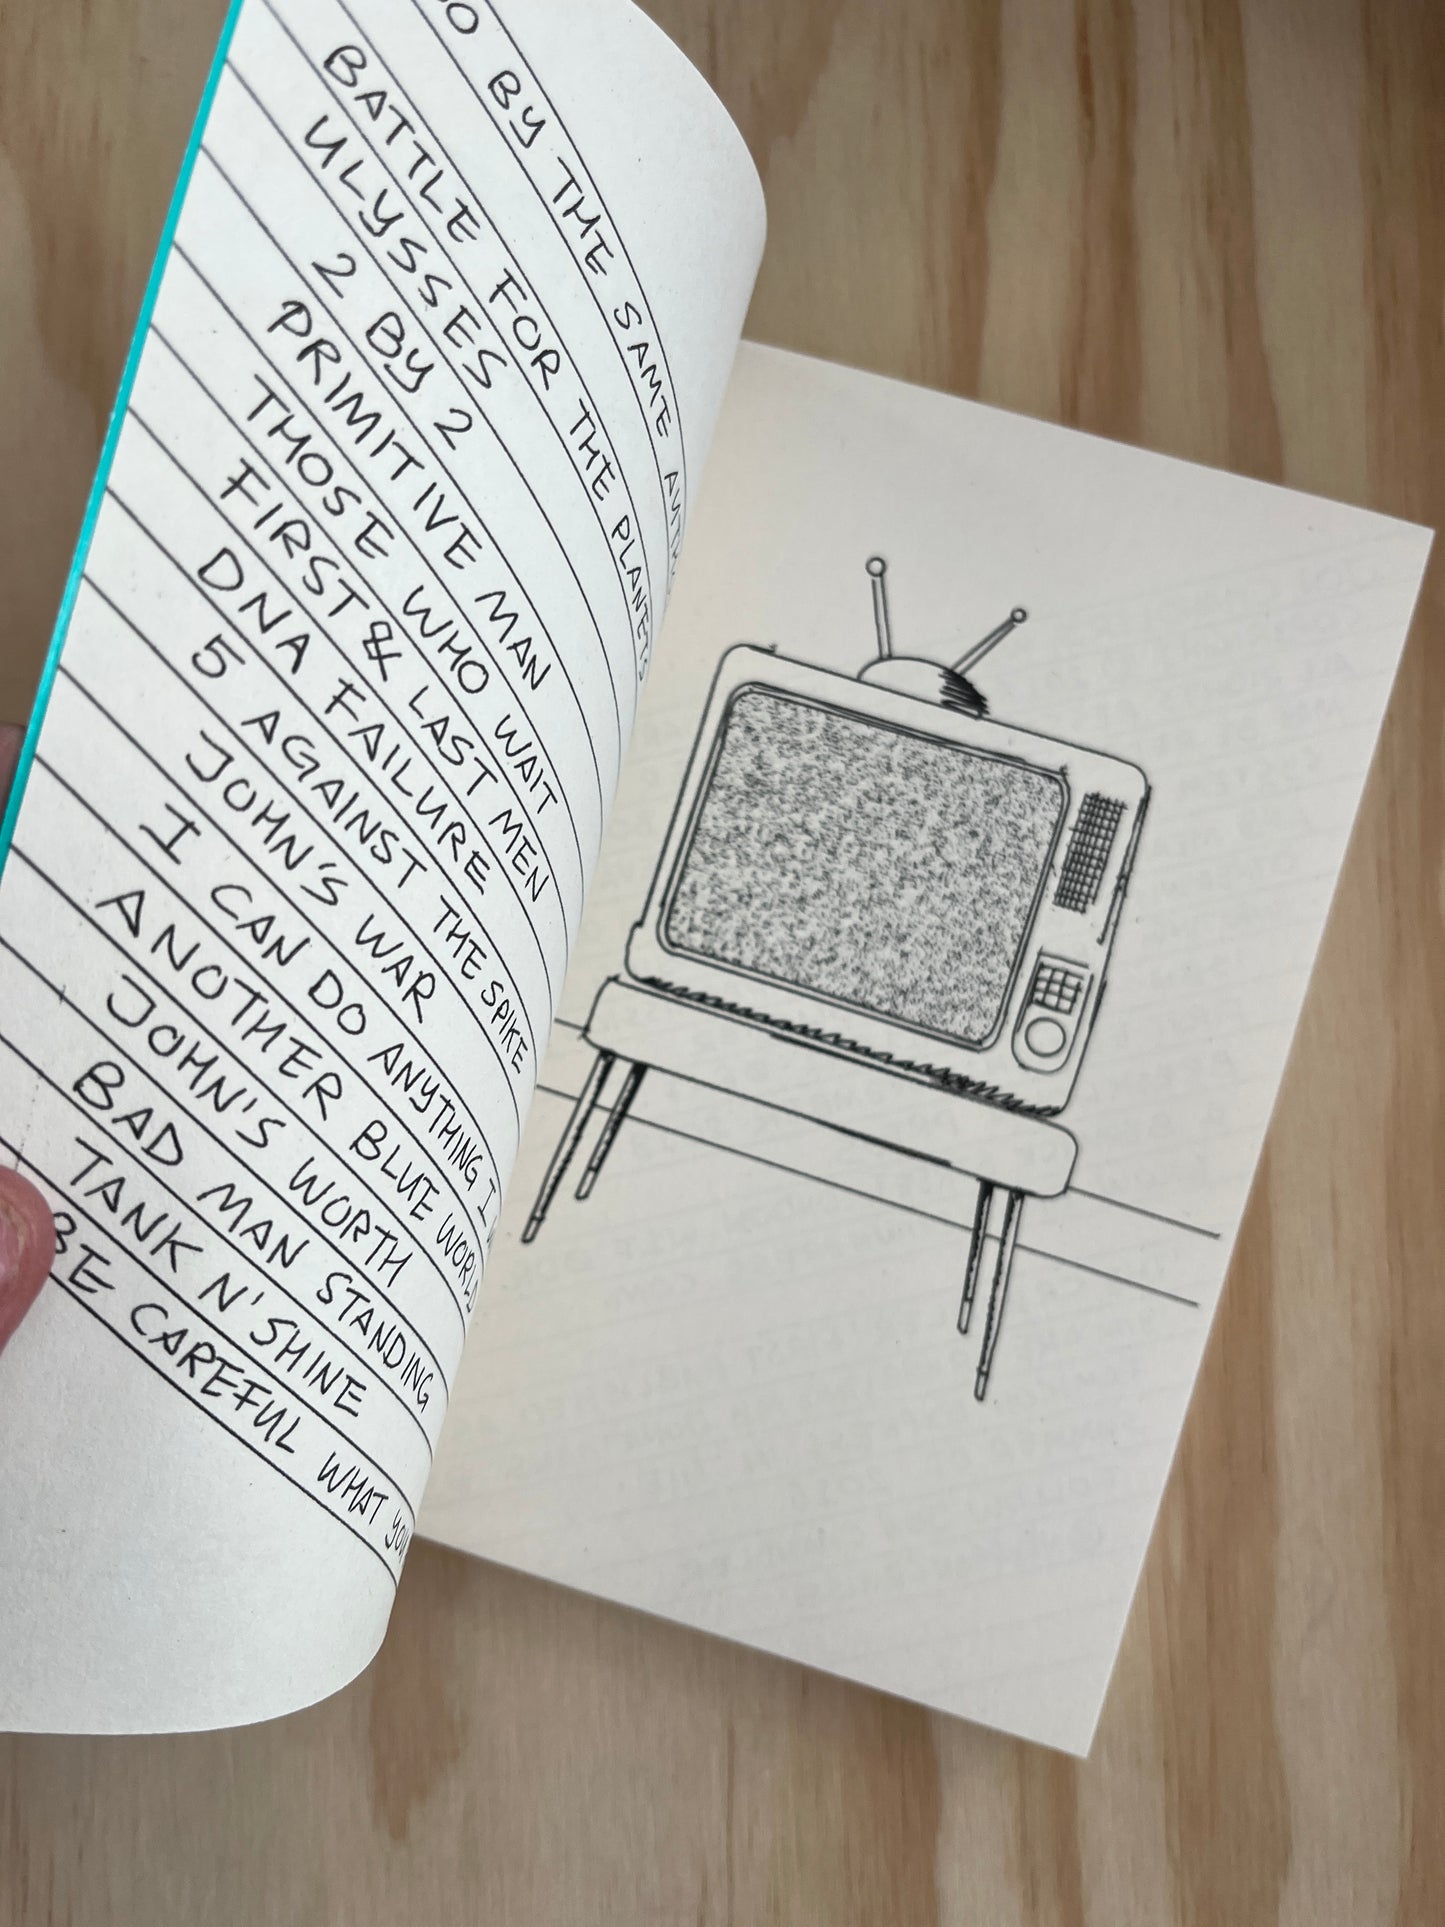 BY THE SAME
BATTLE FOR THE PLANETS
ULYSSES
2 BY 2
PRIMITIVE MAN
THOSE WHO WAIT
FIRST & LAST MEN
DNA FAILURE
5 AGAINST THE SPIKE
JOHN'S WAR
I CAN DO ANYTHING I
ANOTHER BLUE WORLD
JOHN'S WORTH
BAD MAN STANDING
TANK N' SHINE
BE CAREFUL WHAT YOU